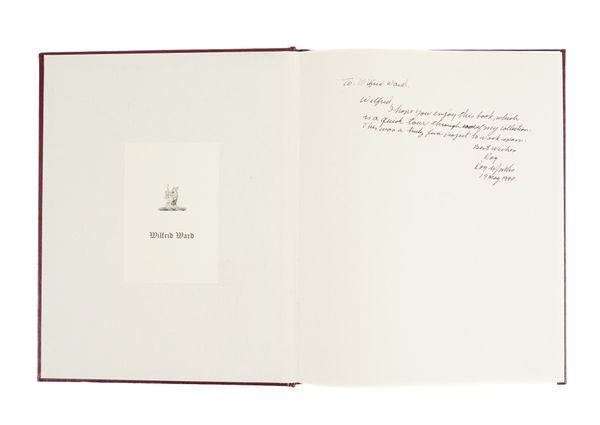 Wilfrid Ward
To: Wilfrid Ward.
Wilfrid,
I hope you enjoy this book, which
is a quick tour through my collection.
This was a truly fun project to work upon.
Best wishes
Roy
Roy
19 May